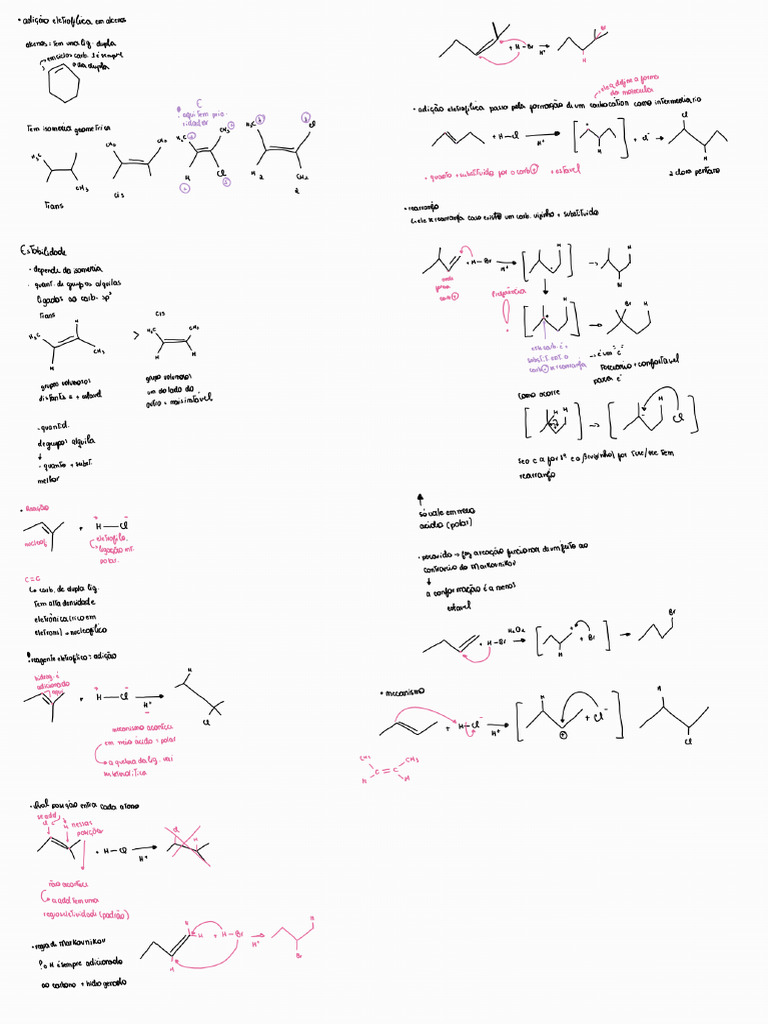 • adição eletrofílica em alcenos
alcenos: tem uma lig. dupla
em ciclos carb. 1 é sempre
o da dupla
Tem isomeria geometrica
H₃C
CH₃
Trans
CH₃
CH₃
cis
E
aqui tem prio-
ridades
H₃C
CH₃
H
Cl
H₃C
Cl
H
CH₃
Z
Estabilidade
• depende da isomeria
• quant. de grupos alquilas
ligados ao carb. sp²
trans
H₃C
H
H
CH₃
>
cis
H₃C
CH₃
H
H
grupos volumosos
distantes e + estavel
grupo volumosos
um do lado do
outro + mais instável
- quantid.
de grupos alquila
↓
- quanto + subst.
melhor
• Reação
nucleof.
+
H — Cl
eletrofilo.
ligação mt.
polar.
C=C
↳ carb. de dupla lig.
tem alta densidade
eletrônica (rico em
eletrons) → nucleofílico
reagente eletrofílico: adição
hidrog. é
adicionado
aqui
+
H — Cl
H⁺
H
Cl
mecanismo acontece
em meio acido e polar
a quebra da lig. vai
ser heterolitica
• Qual posição entra cada atomo
se add
Cl
H
nessas
posições
+ H — Cl
H⁺
Cl
H
não acontece
↳ a add tem uma
regiosseletividade (padrão)
• regra de Markovnikov
? o H é sempre adicionado
ao carbono + hidrogenado
H
H
H
+ H — Br
H⁺
H
Br
+ H — Br
H⁺
Br
H
ele q define a forma
da molecula
• adição eletrofílica passa pela formação de um carbocation como intermediario
+ H — Cl
H⁺
H
+ Cl⁻
Cl
H
2 cloro pentano
• quanto + substituido for o carb ⊕ + estavel
• rearranjo
↳ ele se rearranja caso existe um carb. vizinho + substituido
+ H — Br
H⁺
H
H
Br
onde
forma
carb ⊕
frequência
!
H
Br
H
este carb. é +
substit. ent. o
carb ⊕ se rearranja
como ocorre
H
H
H
Cl
se o c α for 2ª e o β (vizinho) for terc/sec tem
rearranjo
só vale em meio
acido (polar)
• peroxido → faz a reação funcionar de um jeito ao
contrario do Markovnikov
↓
a conformação é a menos
estavel
+ H — Br
H₂O₂
H
+ Br
Br
• mecanismo
+ H — Cl
H⁺
H
⊕
+ Cl⁻
H
Cl
CH₃
CH₃
C = C
H
H